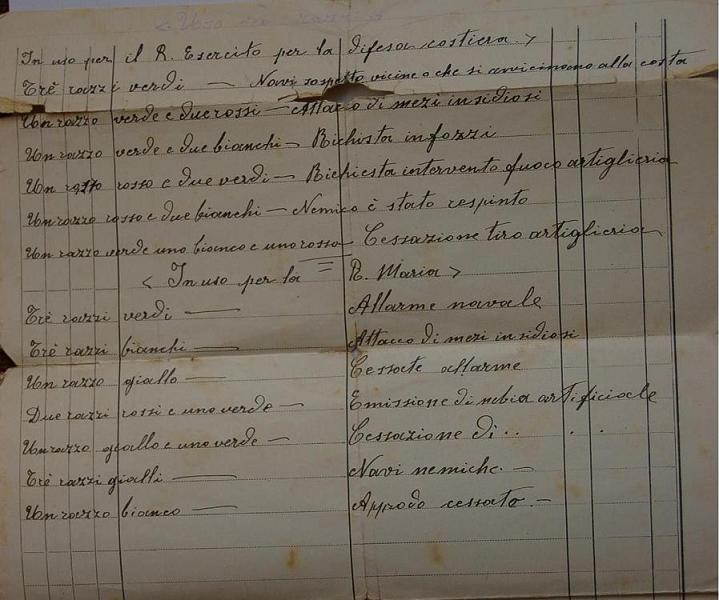 < Uso dei razzi >
In uso per il R. Esercito per la difesa costiera >
Trè razzi verdi — Navi sospette vicine o che si avvicinano alla costa
Un razzo verde e due rossi — Attacco di mezi insidiosi
Un razzo verde e due bianchi — Richista infozzi
Un rosso e due verdi — Richiesta intervento fuoco artiglieria
Un razzo rosso e due bianchi — Nemico è stato respinto
Un razzo verde uno bianco e uno rosso — Cessazione tiro artiglieria
< In uso per la R. Maria >
Trè razzi verdi — Allarme navale
Trè razzi bianchi — Attacco di mezi insidiosi
Un razzo giallo — Cessate allarme
Due razzi rossi e uno verde — Emissione di nebia artificiale
Un razzo giallo e uno verde — Cessazione di . . . .
Trè razzi gialli — Navi nemiche. —
Un razzo bianco — Approdo cessato. —